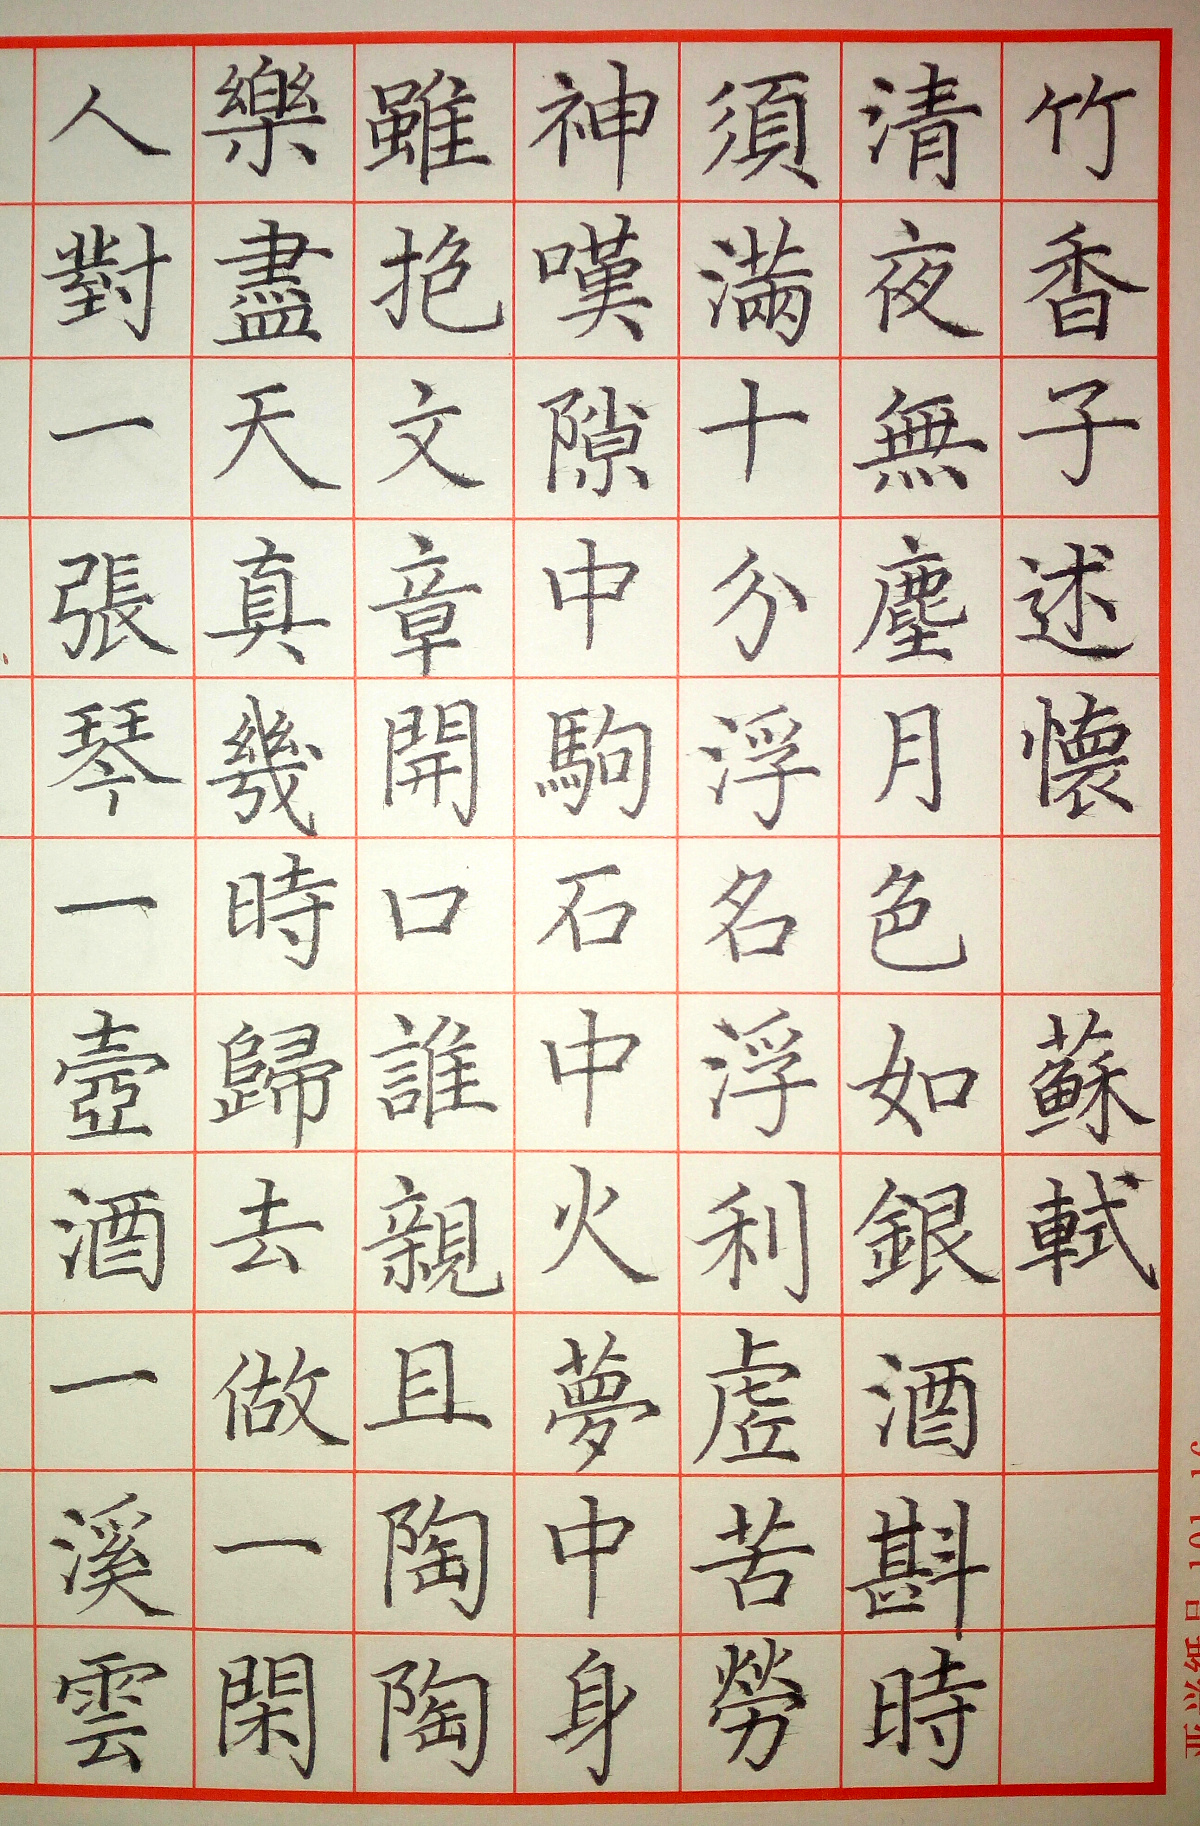 竹香子述懷 蘇軾
清夜無塵月色如銀酒斟時
須滿十分浮名浮利虛苦勞
神嘆隙中駒石中火夢中身
雖抱文章開口誰親且陶陶
樂盡天真幾時歸去做一閑
人對一張琴一壺酒一溪雲